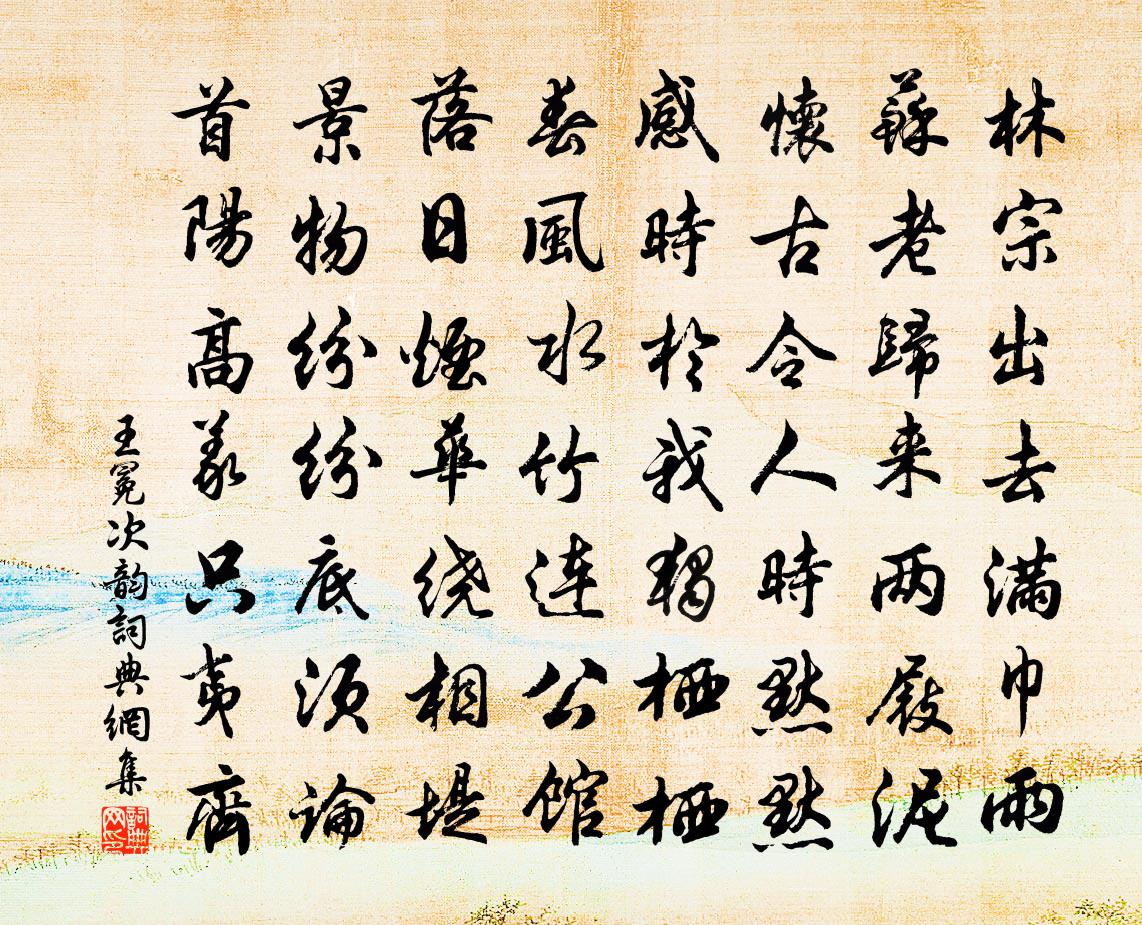 林宗出去滿巾雨
蘇老歸來两屐泥
懷古令人時黙黙
感時於我獨栖栖
春風水竹連公館
落日煙華繞相堤
景物紛紛底須論
首陽高義只夷齊
王冕次韵詞典網集